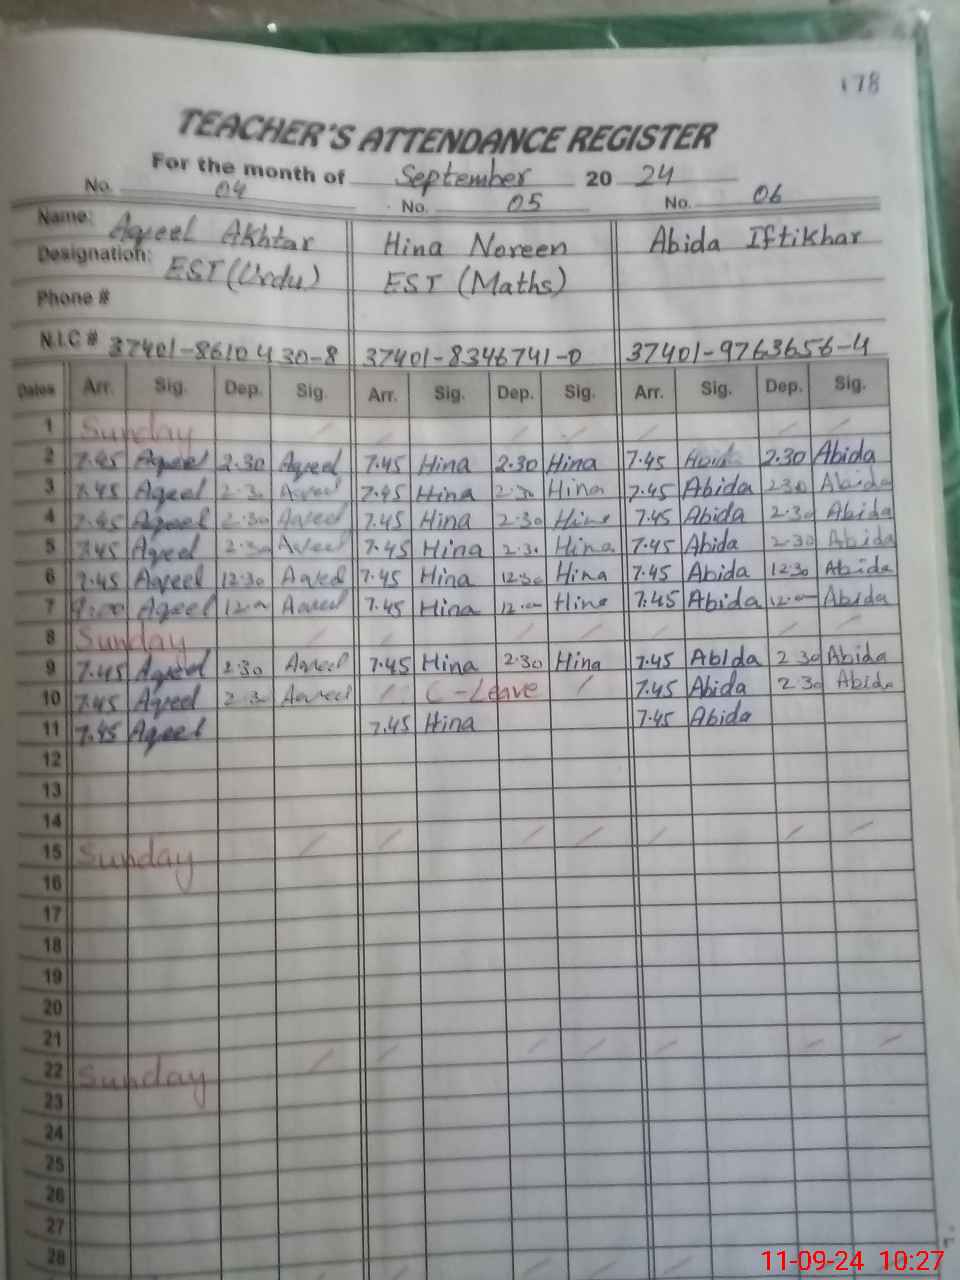 178
TEACHER'S ATTENDANCE REGISTER
For the month of September 20 24
No. 04 No. 05 No. 06
Name: Aqeel Akhtar Hina Noreen Abida Iftikhar
Designation: EST (Urdu) EST (Maths)
Phone #
N.I.C # 37401-8610430-8 37401-8346741-0 37401-9763656-4
Dates Arr. Sig. Dep. Sig. Arr. Sig. Dep. Sig. Arr. Sig. Dep. Sig.
1 Sunday
2 7.45 Aqeel 2.30 Aqeel 7.45 Hina 2.30 Hina 7.45 Abida 2.30 Abida
3 7.45 Aqeel 2.30 Aqeel 7.45 Hina 2.30 Hina 7.45 Abida 2.30 Abida
4 7.45 Aqeel 2.30 Aqeel 7.45 Hina 2.30 Hina 7.45 Abida 2.30 Abida
5 7.45 Aqeel 2.30 Aqeel 7.45 Hina 2.30 Hina 7.45 Abida 2.30 Abida
6 7.45 Aqeel 12.30 Aqeel 7.45 Hina 12.30 Hina 7.45 Abida 12.30 Abida
7 Aqeel 12.00 Aqeel 7.45 Hina 12.00 Hina 7.45 Abida 12.00 Abida
8 Sunday
9 7.45 Aqeel 2.30 Aqeel 7.45 Hina 2.30 Hina 7.45 Abida 2.30 Abida
10 7.45 Aqeel 2.30 Aqeel C-Leave 7.45 Abida 2.30 Abida
11 7.45 Aqeel 7.45 Hina 7.45 Abida
12
13
14
15 Sunday
16
17
18
19
20
21
22 Sunday
23
24
25
26
27
28
11-09-24 10:27